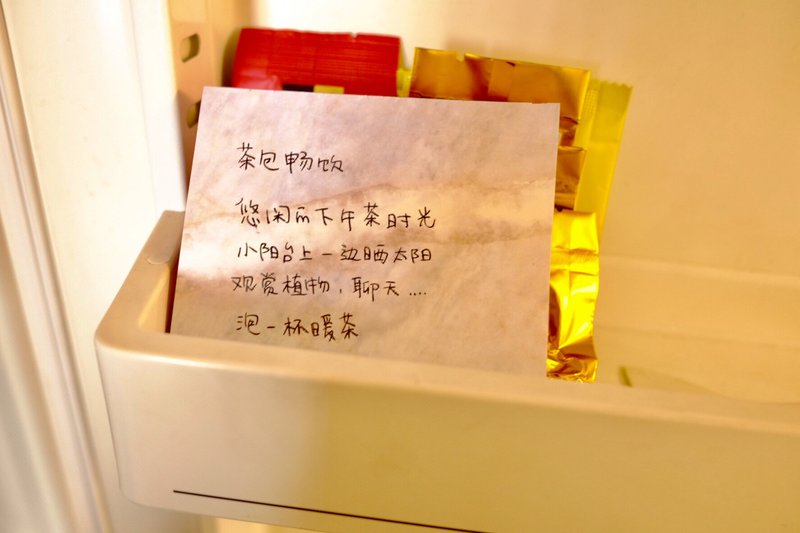 茶包畅饮
悠闲的下午茶时光
小阳台上一边晒太阳
观赏植物，聊天....
泡一杯暖茶